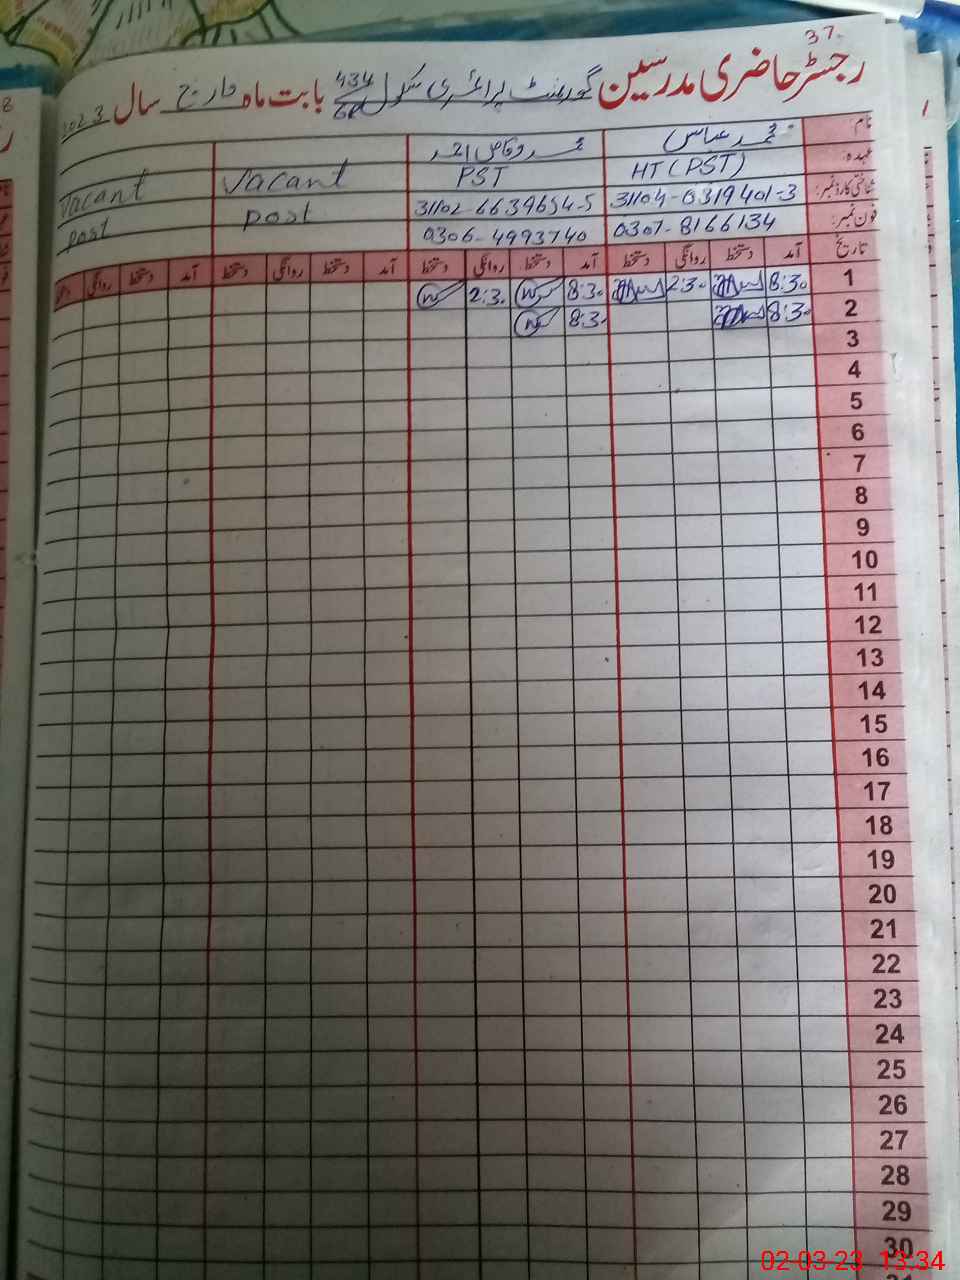 37
رجسٹر حاضری مدرسین گورنمنٹ پرائمری سکول 434/6R بابت ماہ مارچ سال 2023
نام: محمد عباس محمد وقاص احمد
عہدہ: HT (PST) PST Vacant Vacant
شناختی کارڈ نمبر: 31104-0319401-3 31102-6639654-5 post post
فون نمبر: 0307-8166134 0306-4993740
تاریخ آمد دستخط روانگی دستخط آمد دستخط روانگی دستخط آمد دستخط روانگی دستخط آمد دستخط روانگی
1 8:30 2:30 8:30 2:30
2 8:30 8:30
3
4
5
6
7
8
9
10
11
12
13
14
15
16
17
18
19
20
21
22
23
24
25
26
27
28
29
30
02-03-23 13:34